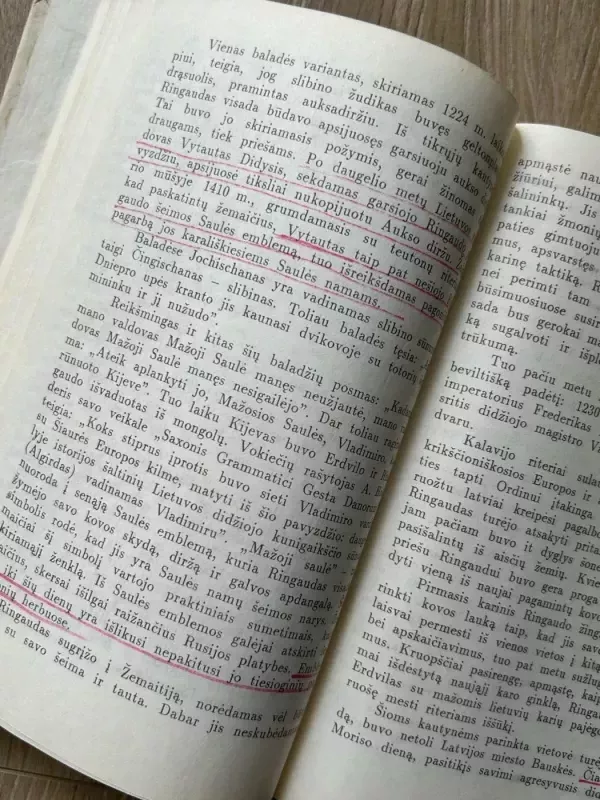 Vienas baladės variantas, skiriamas 1224 m. laik
piui, teigia, jog slibino žudikas buvęs geltonpl
drąsuolis, pramintas auksadiržiu. Iš tikrųjų kari
Ringaudas visada būdavo apsijuosęs garsiuoju aukso
Tai buvo jo skiriamasis požymis, gerai žinomas
draugams, tiek priešams. Po daugelio metų Lietuvos
dovas Vytautas Didysis, sekdamas garsiojo Ringaudo
vyzdžiu, apsijuosė tiksliai nukopijuotu Aukso diržu.
rio mūšyje 1410 m., grumdamasis su teutonų riter
kad paskatintų žemaičius, Vytautas taip pat nešiojo
gaudo šeimos Saulės emblemą, tuo išreikšdamas pagon
pagarbą jos karališkiesiems Saulės namams.
Baladėse Jochischanas yra vadinamas slibino sūn
taigi Čingischanas – slibinas. Toliau baladės tęsia:
Dniepro upės kranto jis kaunasi dvikovoje su totorių
mininku ir jį nužudo".
Reikšmingas ir kitas šių baladžių posmas: „Kada
mano valdovas Mažoji Saulė manęs neužjautė, mano
dovas Mažoji Saulė manęs nesigailėjo". Dar toliau rag
ma: „Ateik aplankyti jo, Mažosios Saulės, Vladimiro,
rūnuoto Kijeve". Tuo laiku Kijevas buvo Erdvilo ir
gaudo išvaduotas iš mongolų. Vokiečių rašytojas A.
deris savo veikale „Saxonis Grammatici Gesta Danorum
teigia: „Koks stiprus įprotis buvo sieti Vladimiro var
su Šiaurės Europos kilme, matyti iš šio pavyzdžio: dau
lyje istorijos šaltinių Lietuvos didžiojo kunigaikščio
(Algirdas) vadinamas Vladimiru". „Mažoji saulė"
nuoroda į senąją Saulės emblemą, kuria Ringaudas visa
žymėjo savo kovos skydą, diržą ir galvos apdangalą.
simbolis rodė, kad jis yra Saulės namų šeimos narys.
maičiai šį simbolį vartojo praktiniais sumetimais,
kiriamąjį ženklą. Iš Saulės emblemos galėjai atskirti
aičius, skersai išilgai raižančius Rusijos platybes. Emb
iki šių dienų yra išlikusi nepakitusi jo tiesioginių
nių herbuose.
Ringaudas sugrįžo į Žemaitiją, norėdamas vėl
su savo šeima ir tauta. Dabar jis neskubėdamas
apmąstė nau
žiūriui, galim
šalininkų. Jis
tankiai žmonių
paties gimtuoj
mus, apsvarstęs
karinę taktiką. R
nei perimti tam
būsimuosiuose susir
sada bus gerokai ma
ką sugalvoti ir išpl
trūkumą.
Tuo pačiu metu
beviltišką padėtį: 1230
imperatorius Frederikas
sritis didžiojo magistro V
dvaru.
Kalavijo riteriai sula
krikščioniškosios Europos ir a
ties tapti Ordinui įtakinga
ruožtu latviai kreipėsi pagalbo
Ringaudas turėjo atsakyti prita
jam pačiam buvo it dyglys šone
pasišalintų iš aisčių žemių. Kvie
priešu Ringaudui buvo gera proga
dyti vieną iš naujai pagamintų kovo
Pirmasis karinis Ringaudo žingsn
rinkti kovos lauką taip, kad jis sava
laisvai permesti iš vienos vietos į kitą
bei apskaičiavimas, tuo pat metu sužlug
mus. Kruopščiai pasirengę, apmąstę, kaip
mai išdėstytą naująjį karo ginklą, Ringaud
Erdvilas su mažomis lietuvių karių pajėgo
ruošę mesti riteriams iššūkį.
Šioms kautynėms parinkta vietovė turė
dą, buvo netoli Latvijos miesto Bauskės. Čia
Moriso dieną, pasitikęs savimi agresyvusis did